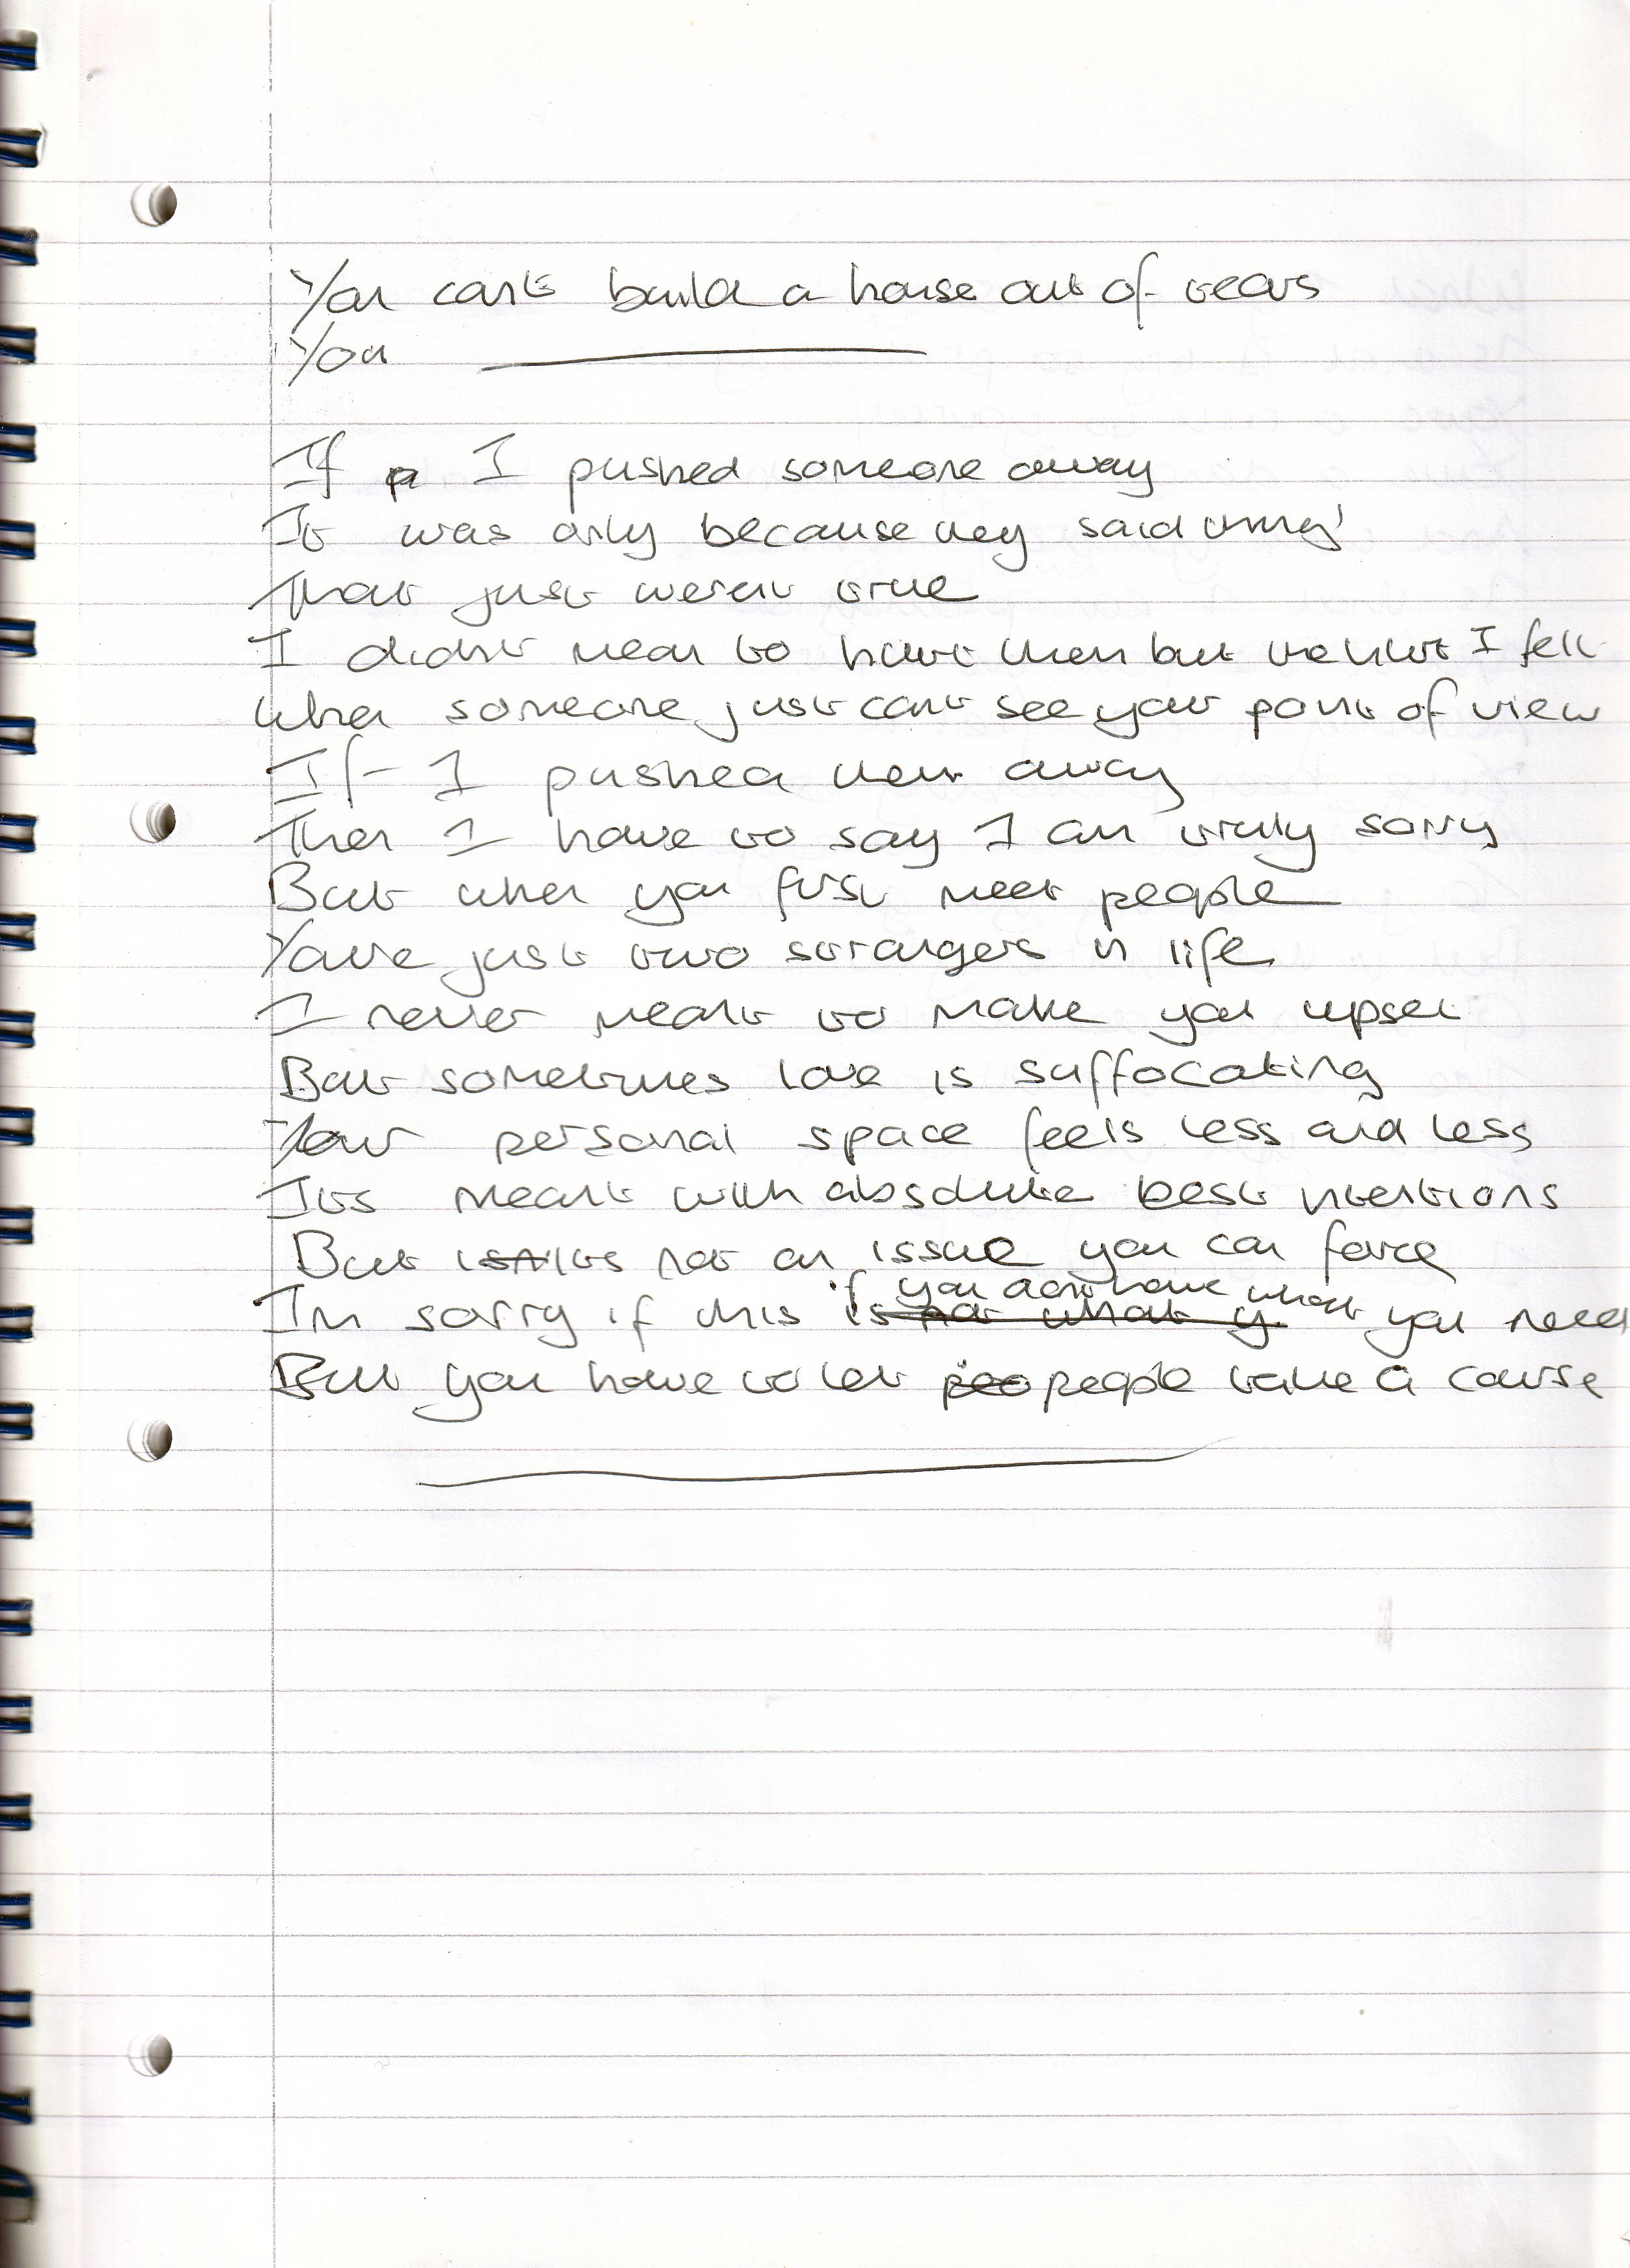 You cant build a house out of tears
You
If I pushed someone away
It was only because they said things
That just werent true
I didnt mean to hurt them but the hurt I felt
When someone just cant see your point of view
If I pushed them away
Then I have to say I am truly sorry
But when you first meet people
Youre just two strangers in life
I never meant to make you upset
But sometimes love is suffocating
Your personal space feels less and less
Its meant with absolute best intentions
But its not an issue you can force
if you dont have what
Im sorry if this is not what y you need
But you have to let peo people take a course